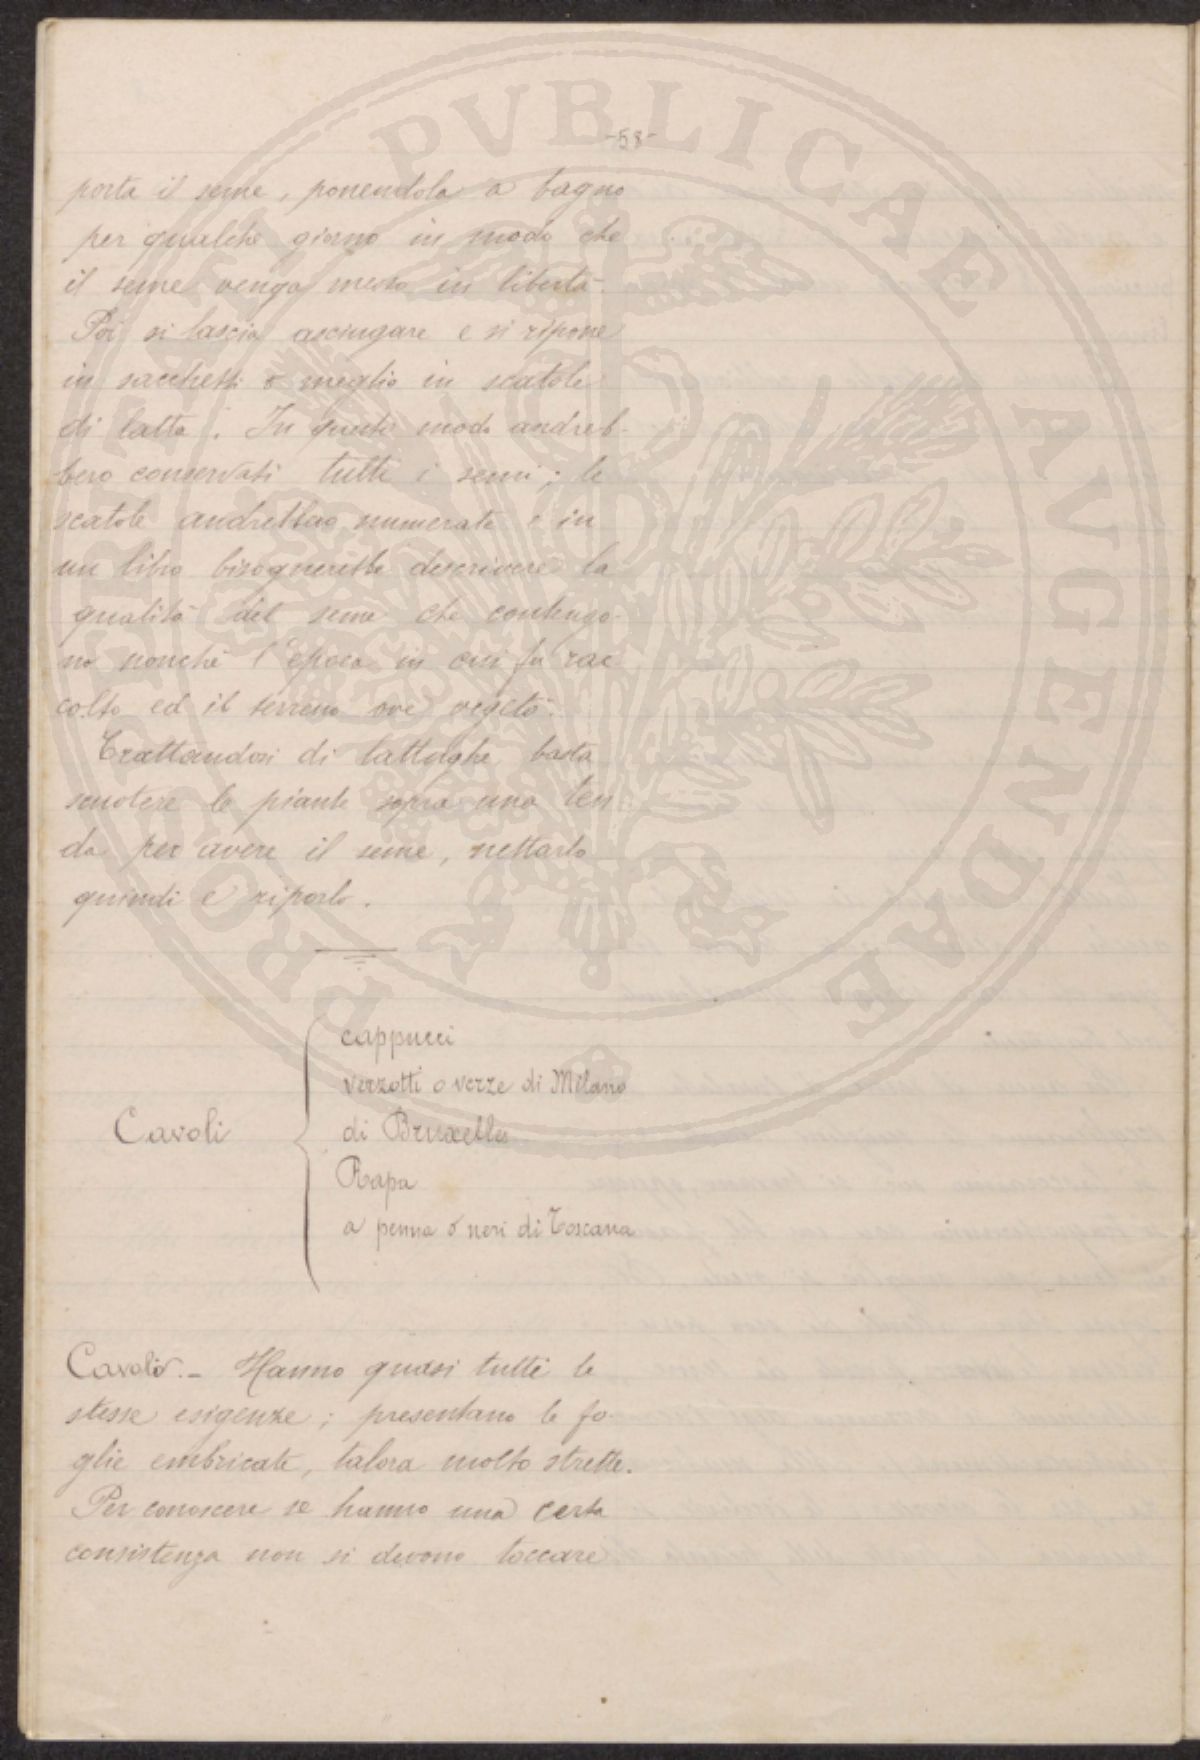 -58-
porta il seme, ponendola a bagno
per qualche giorno in modo che
il seme venga messo in libertà.
Poi si lascia asciugare e si ripone
in sacchetti o meglio in scatole
di latta. In questo modo andreb-
bero conservati tutti i semi; le
scatole andrebbero numerate e in
un libro bisognerebbe descrivere la
qualità del seme che contengo-
no nonchè l'epoca in cui fu rac
colto ed il terreno ove vegetò.
Trattandosi di lattughe basta
scuotere le piante sopra una ten
da per avere il seme, nettarlo
quindi e riporlo.
cappucci
verzotti o verze di Milano
Cavoli
di Bruxelles
Rapa
a penna o neri di Toscana
Cavoli. - Hanno quasi tutti le
stesse esigenze; presentano le fo-
glie embricate, talora molto strette.
Per conoscere se hanno una certa
consistenza non si devono toccare
PROSPERITATI PVBLICAE AVGENDAE